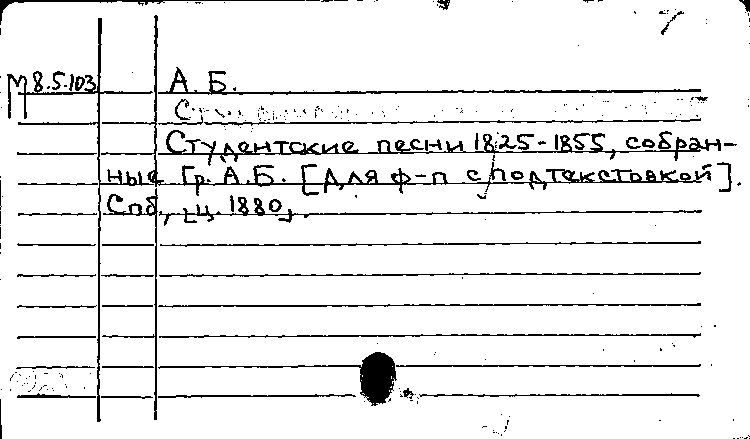 М 8.5.103 А. Б.
Студентские песни 1825-1855, собран-
ные Гр. А.Б. [Для ф-п с подтекстовкой].
Спб., [ц. 1880].